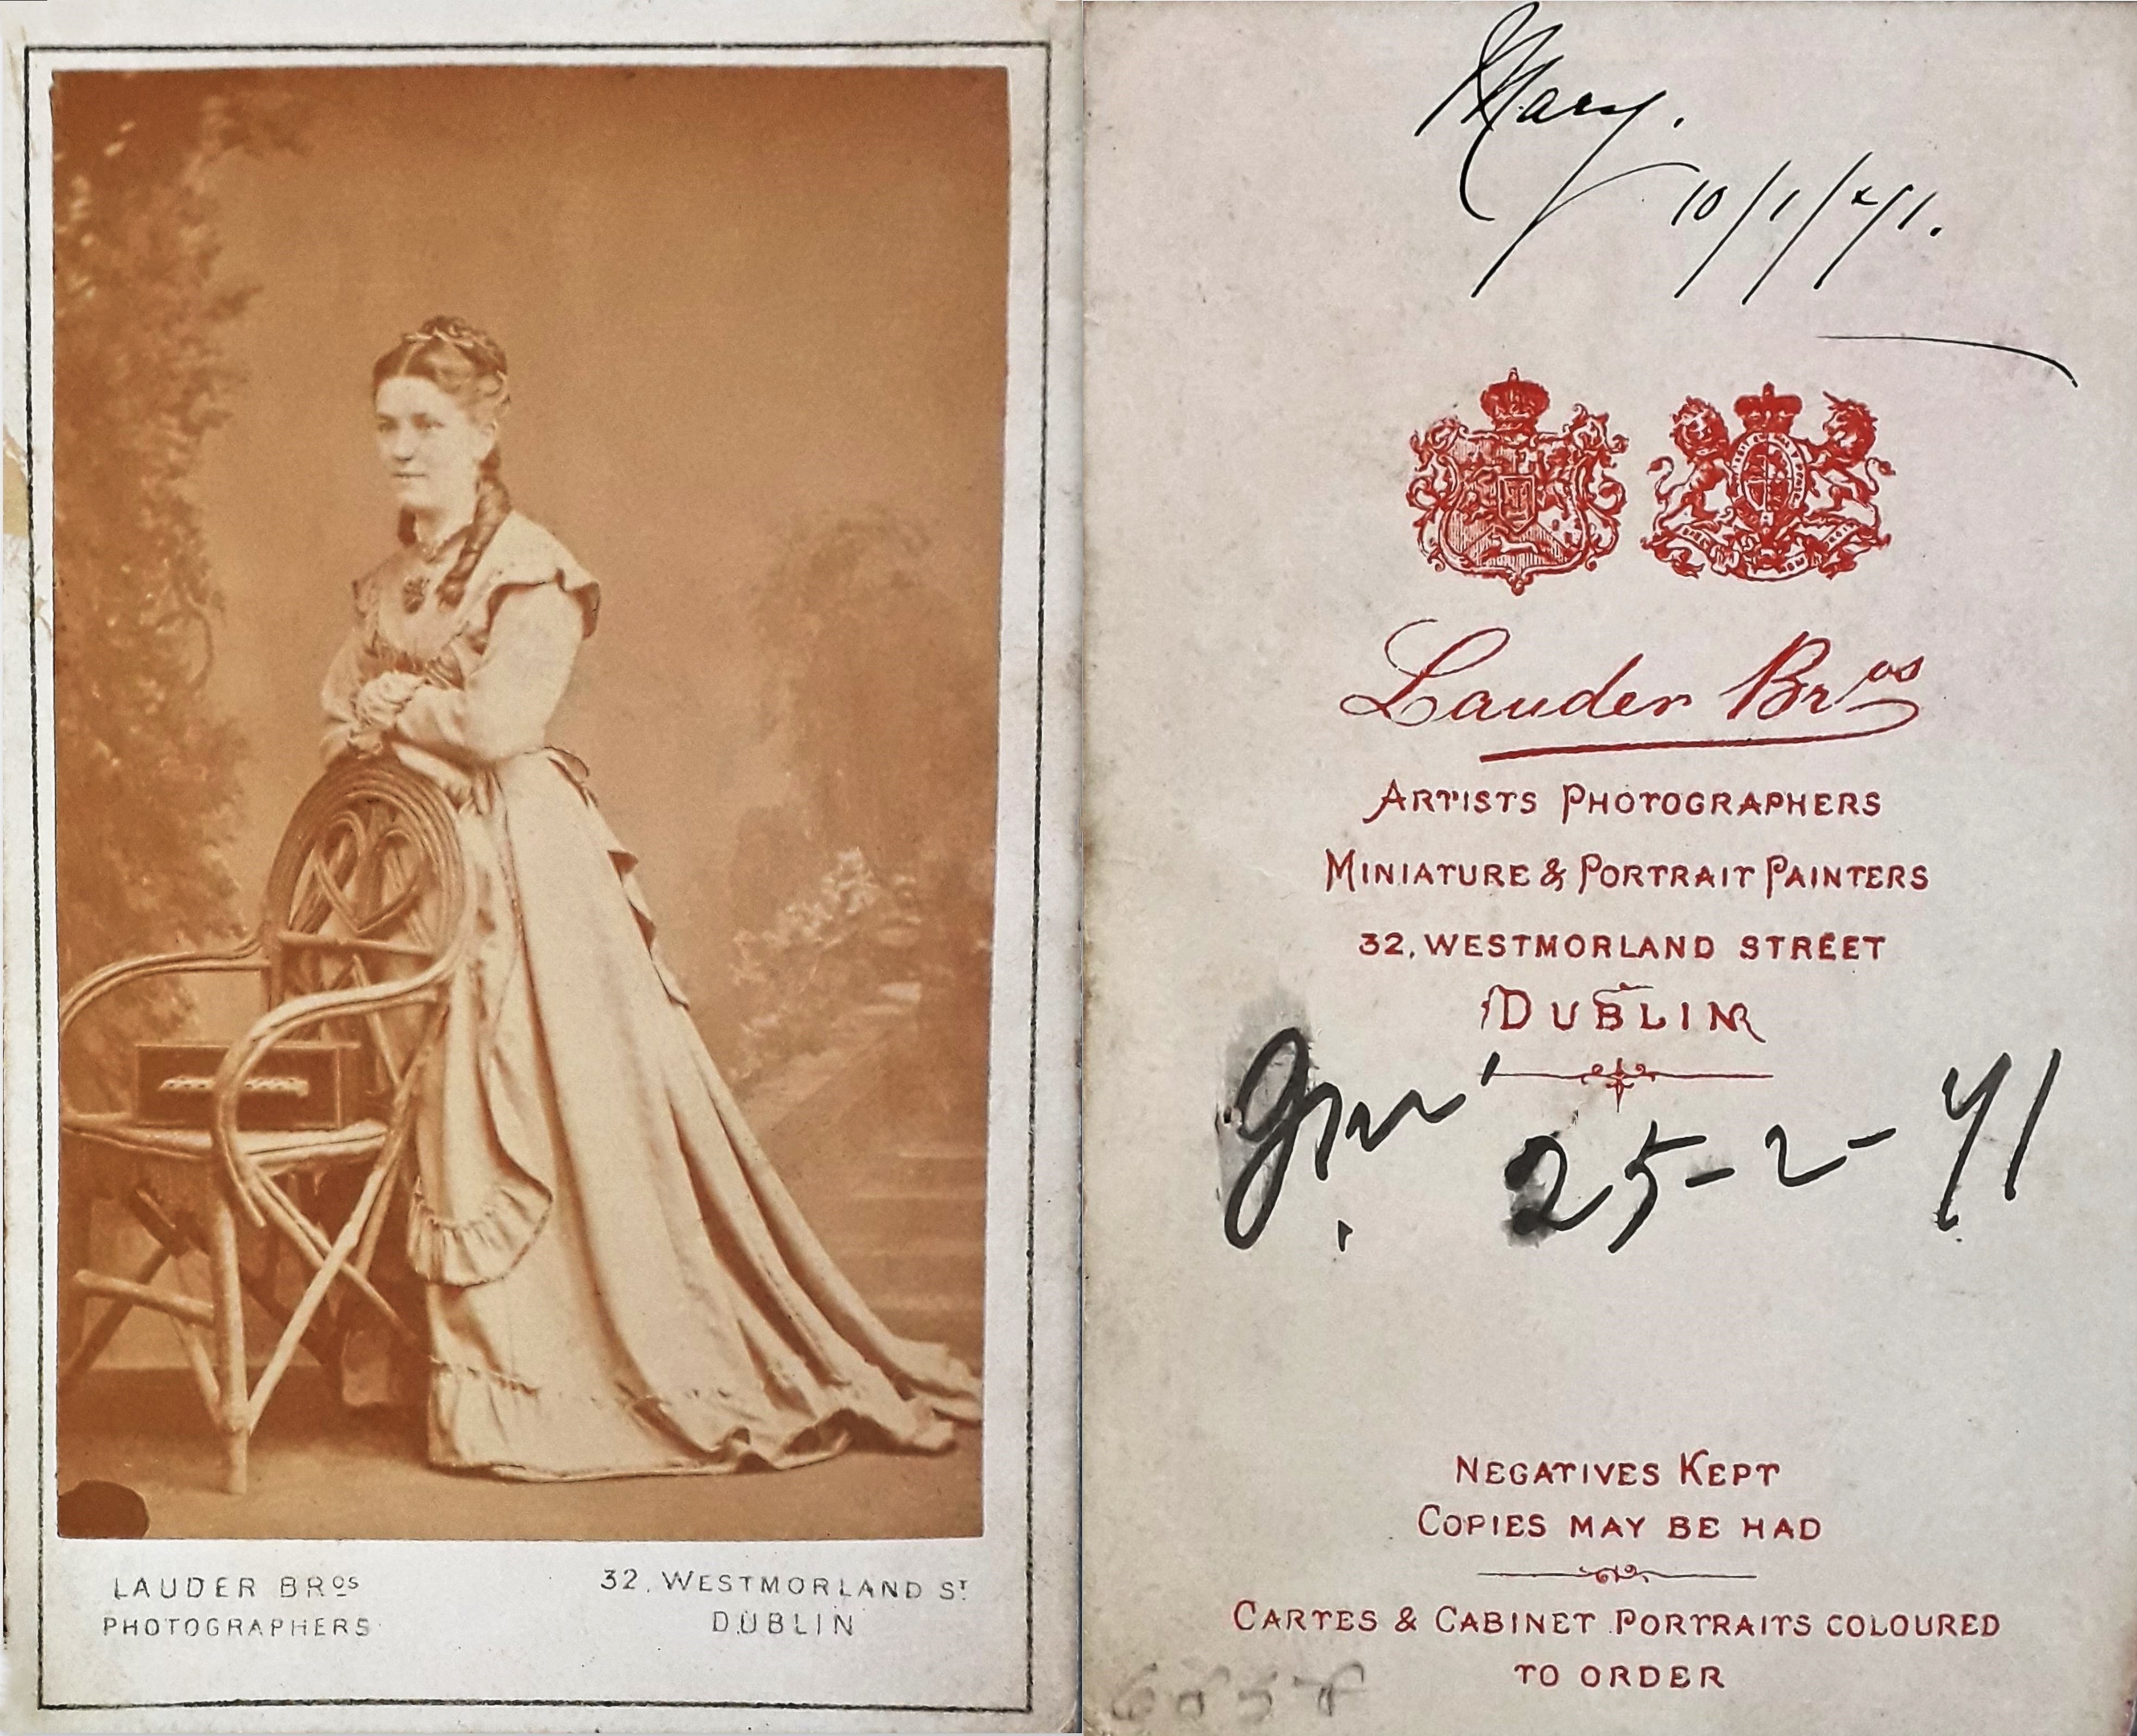 LAUDER BROS
PHOTOGRAPHERS
32, WESTMORLAND ST
DUBLIN
Mary.
10/1/71.
Lauder Bros
ARTISTS PHOTOGRAPHERS
MINIATURE & PORTRAIT PAINTERS
32, WESTMORLAND STREET
DUBLIN
25-2-71
NEGATIVES KEPT
COPIES MAY BE HAD
CARTES & CABINET PORTRAITS COLOURED
TO ORDER